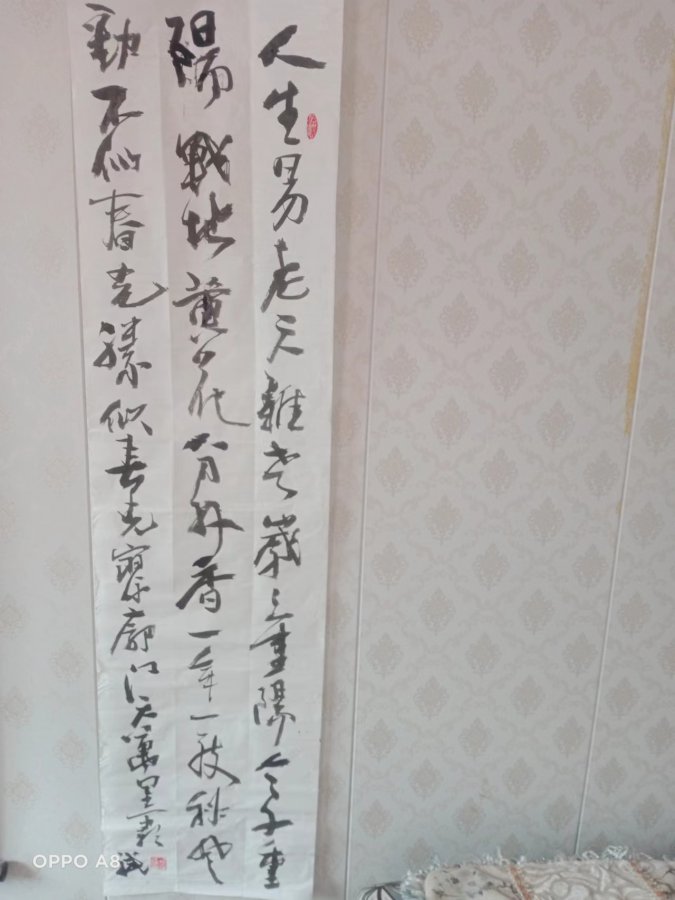 人生易老天難老歲々重陽今又重
陽戰地黃花分外香一年一度秋風
勁不似春光勝似春光寥廓江天萬里霜
OPPO A8